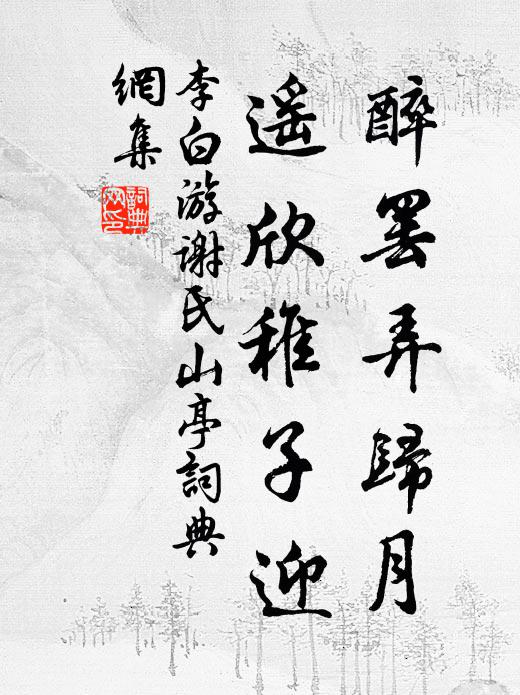 醉罷弄歸月
遥欣稚子迎
李白游謝氏山亭詞典
網集
詞典
网印